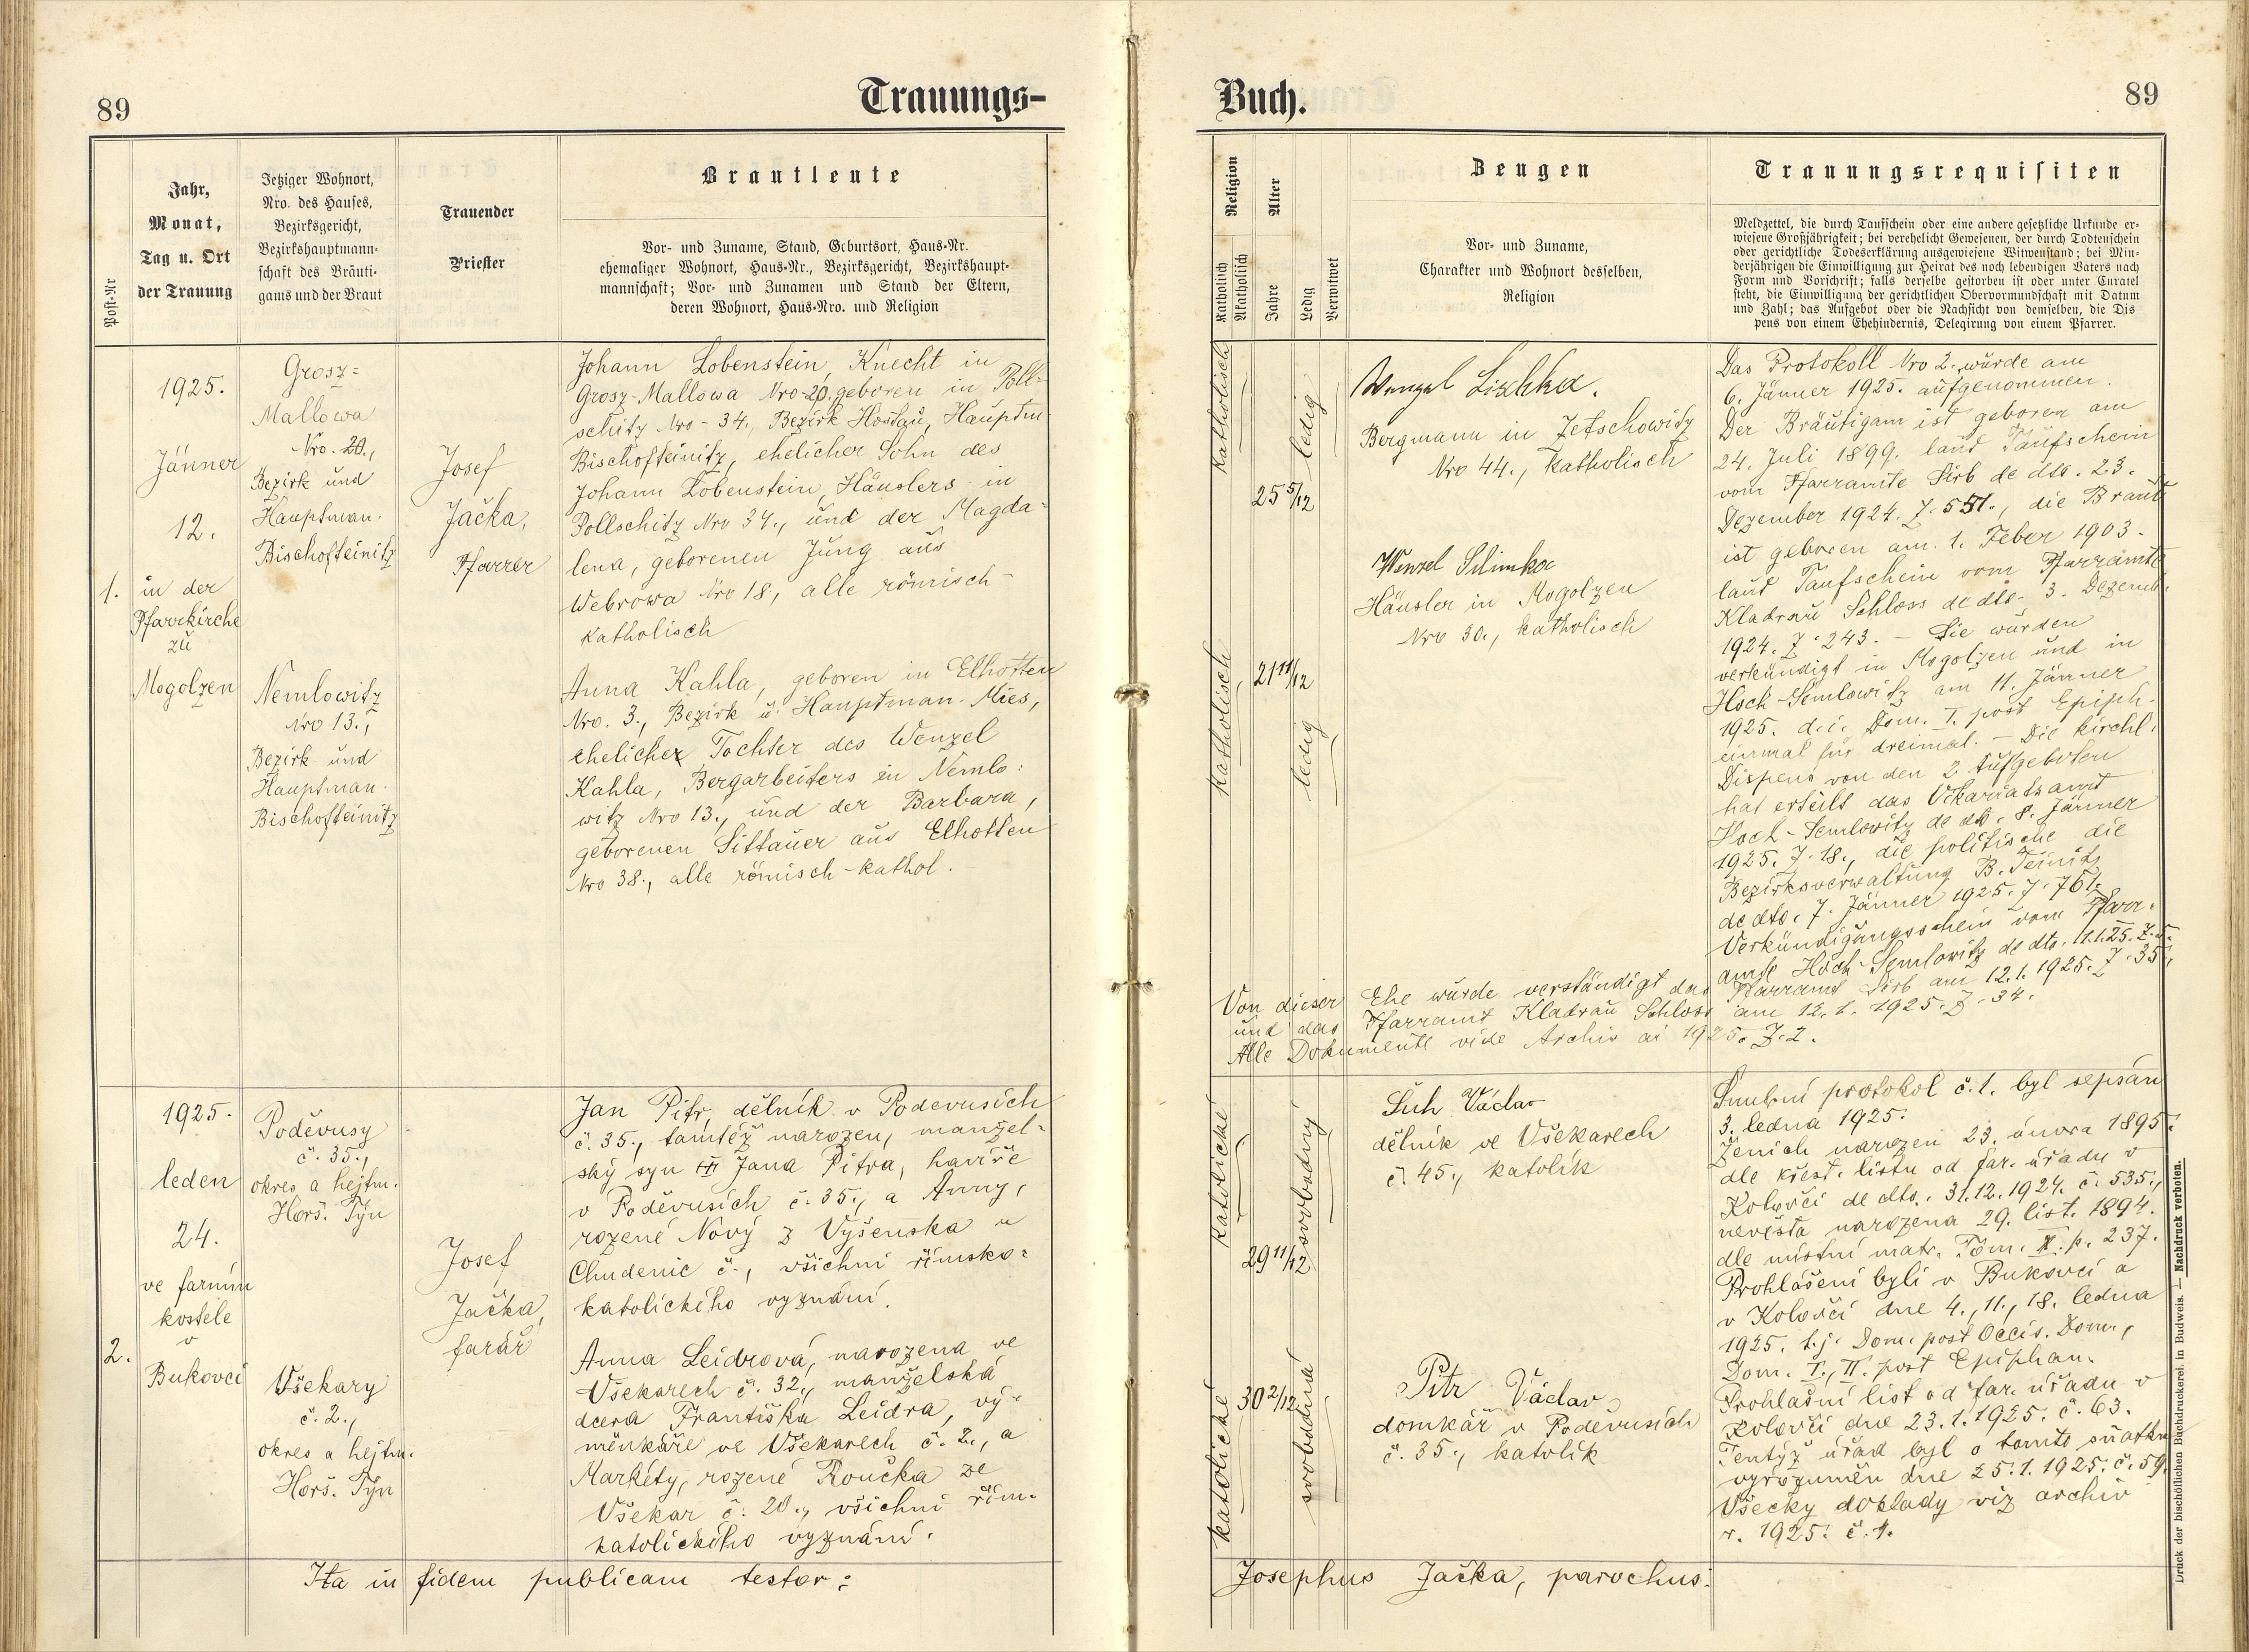 89
Trauungs-
Post-Nr
Jahr,
Monat,
Tag u. Ort
der Trauung
Jetziger Wohnort,
Nro. des Hauses,
Bezirksgericht,
Bezirkshauptmann-
schaft des Bräuti-
gams und der Braut
Trauender
Priester
Brautleute
Vor- und Zuname, Stand, Geburtsort, Haus-Nr.
ehemaliger Wohnort, Haus-Nr., Bezirksgericht, Bezirkshaupt-
mannschaft; Vor- und Zunamen und Stand der Eltern,
deren Wohnort, Haus-Nro. und Religion
1.
1925.
Jänner
12.
in der
Pfarrkirche
zu
Mogolzen
Grosz=
Mallowa
Nro. 20.,
Bezirk und
Hauptman.
Bischofteinitz
Nemlowitz
Nro 13.,
Bezirk und
Hauptman.
Bischofteinitz
Josef
Jačka,
Pfarrer
Johann Lobenstein, Knecht in
Grosz-Mallowa Nro-20, geboren in Poll-
schitz Nro-34., Bezirk Hostau, Hauptm
Bischofteinitz, ehelicher Sohn des
Johann Lobenstein, Häuslers in
Pollschitz Nro 34., und der Magda=
lena, geborenen Jung aus
Webrowa Nro 18, alle römisch-
katholisch
Anna Kahla, geboren in Elhotten
Nro. 3., Bezirk u. Hauptman. Mies,
ehelicher Tochter des Wenzel
Kahla, Bergarbeiters in Nemlo=
witz Nro 13., und der Barbara,
geborenen Sittauer aus Elhotten
Nro 38., alle römisch-kathol.
2.
1925.
leden
24.
ve farním
kostele
v
Bukovci
Poděvusy
č. 35.,
okres a hejtm.
Horš. Týn
Všekary
č. 2.,
okres a hejtm.
Horš. Týn
Josef
Jačka,
farář
Jan Pitr, dělník v Poděvusích
č. 35., tamtéž narozen, manžel-
ský syn Jana Pitra, havíře
v Poděvusích č. 35., a Anny,
rozené Nový z Vyšenska u
Chudenic č., všichni římsko=
katolického vyznání.
Anna Leidrová, narozena ve
Všekarech č. 32., manželská
dcera Františka Leidra, vý-
měnkáře ve Všekarech č. 2., a
Markéty, rozené Roučka ze
Všekar č. 20., všichni řím.
katolického vyznání.
Ita in fidem publicam testor:
Buch.
89
Religion
Katholisch
Akatholisch
Alter
Jahre
Ledig
Verwitwet
Zeugen
Vor- und Zuname,
Charakter und Wohnort desselben,
Religion
Trauungsrequisiten
Meldzettel, die durch Taufschein oder eine andere gesetzliche Urkunde er-
wiesene Großjährigkeit; bei verehelicht Gewesenen, der durch Todtenschein
oder gerichtliche Todeserklärung ausgewiesene Witwenstand; bei Min-
derjährigen die Einwilligung zur Heirat des noch lebendigen Vaters nach
Form und Vorschrift; falls derselbe gestorben ist oder unter Curatel
steht, die Einwilligung der gerichtlichen Obervormundschaft mit Datum
und Zahl; das Aufgebot oder die Nachsicht von demselben, die Dis
pens von einem Ehehindernis, Delegirung von einem Pfarrer.
katholisch
25 5/12
ledig
katholisch
21 11/12
ledig
Wenzel Lischka.
Bergmann in Zetschowitz
Nro 44., katholisch
Wenzel Slimka
Häusler in Mogolzen
Nro 30., katholisch
Das Protokoll Nro 2. wurde am
6. Jänner 1925. aufgenommen.
Der Bräutigam ist geboren am
24. Juli 1899. laut Taufschein
vom Pfarramte Sirb de dto. 23.
Dezember 1924. Z. 551., die Braut
ist geboren am. 1. Feber 1903.
laut Taufschein vom Pfarramte
Kladrau Schloss de dto. 3. Dezemb.
1924. Z. 243. - Sie wurden
verkündigt in Mogolzen und in
Hoch-Semlowitz am 11. Jänner
1925. d. i. Dom. I. post Epiph.
einmal für dreimal. - Die kirchl.
Dispens von den 2 Aufgeboten
hat erteilt das Vikariatsamt
Hoch-Semlowitz de dto. 8. Jänner
1925. Z. 18., die politische die
Bezirksverwaltung B. Teinitz
de dto. 7. Jänner 1925. Z. 761.
Verkündigungsschein vom Pfarr-
amte Hoch-Semlowitz de dto. 11.1.25. Z.
Von dieser Ehe wurde verständigt das Pfarramt Sirb am 12.1.1925. Z. 35.,
und das Pfarramt Kladrau Schloss am 12.1.1925. Z. 34.
Alle Dokumente vide Archiv ai 1925. Z. 2.
katolické
29 11/12
svobodný
katolické
30 2/12
svobodná
Suh Václav
dělník ve Všekarech
č. 45., katolík
Pitr Václav
domkář v Poděvusích
č. 35., katolík
Snubní protokol č. 1. byl sepsán
3. ledna 1925.
Ženich narozen 23. února 1895.
dle křest. listu od far. úřadu v
Kolovči de dto. 31.12.1924. č. 535.,
nevěsta narozena 29. list. 1894.
dle místní matr. Tom. X. p. 237.
Prohlášeni byli v Bukovci a
v Kolovči dne 4., 11., 18. ledna
1925. t. j. Dom. post Occis. Dom.,
Dom. I., II. post Epiphan.
Prohlašní list od far. úřadu v
Kolovči dne 23.1.1925. č. 63.
Tentýž úřad byl o tomto sňatku
vyrozuměn dne 25.1.1925. č. 59.
Všecky doklady viz archiv
r. 1925. č. 1.
Josephus Jačka, parochus.
Druck der bischöflichen Buchdruckerei in Budweis. — Nachdruck verboten.